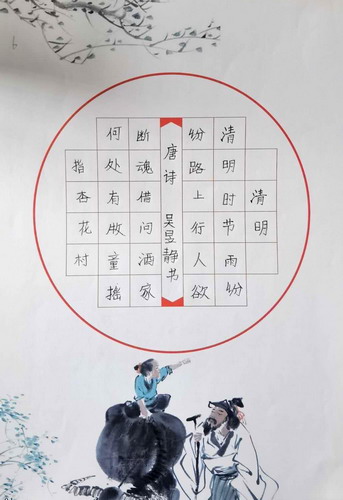 清明
清明时节雨纷
纷路上行人欲
唐诗 吴昱静书
断魂借问酒家
何处有牧童摇
指杏花村